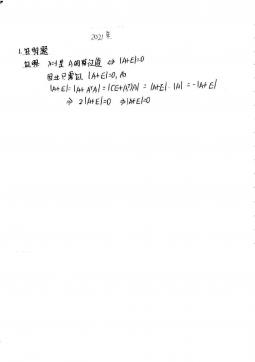 2021年
1.证明题
证明 λ=-1是 A的特征值 ⇔ |A+E|=0
因此只需证 |A+E|=0,
|A+E|=|A+AᵀA|=|(E+Aᵀ)A|=|A+E|·|A|=-|A+E|
⇒ 2|A+E|=0 ⇒|A+E|=0